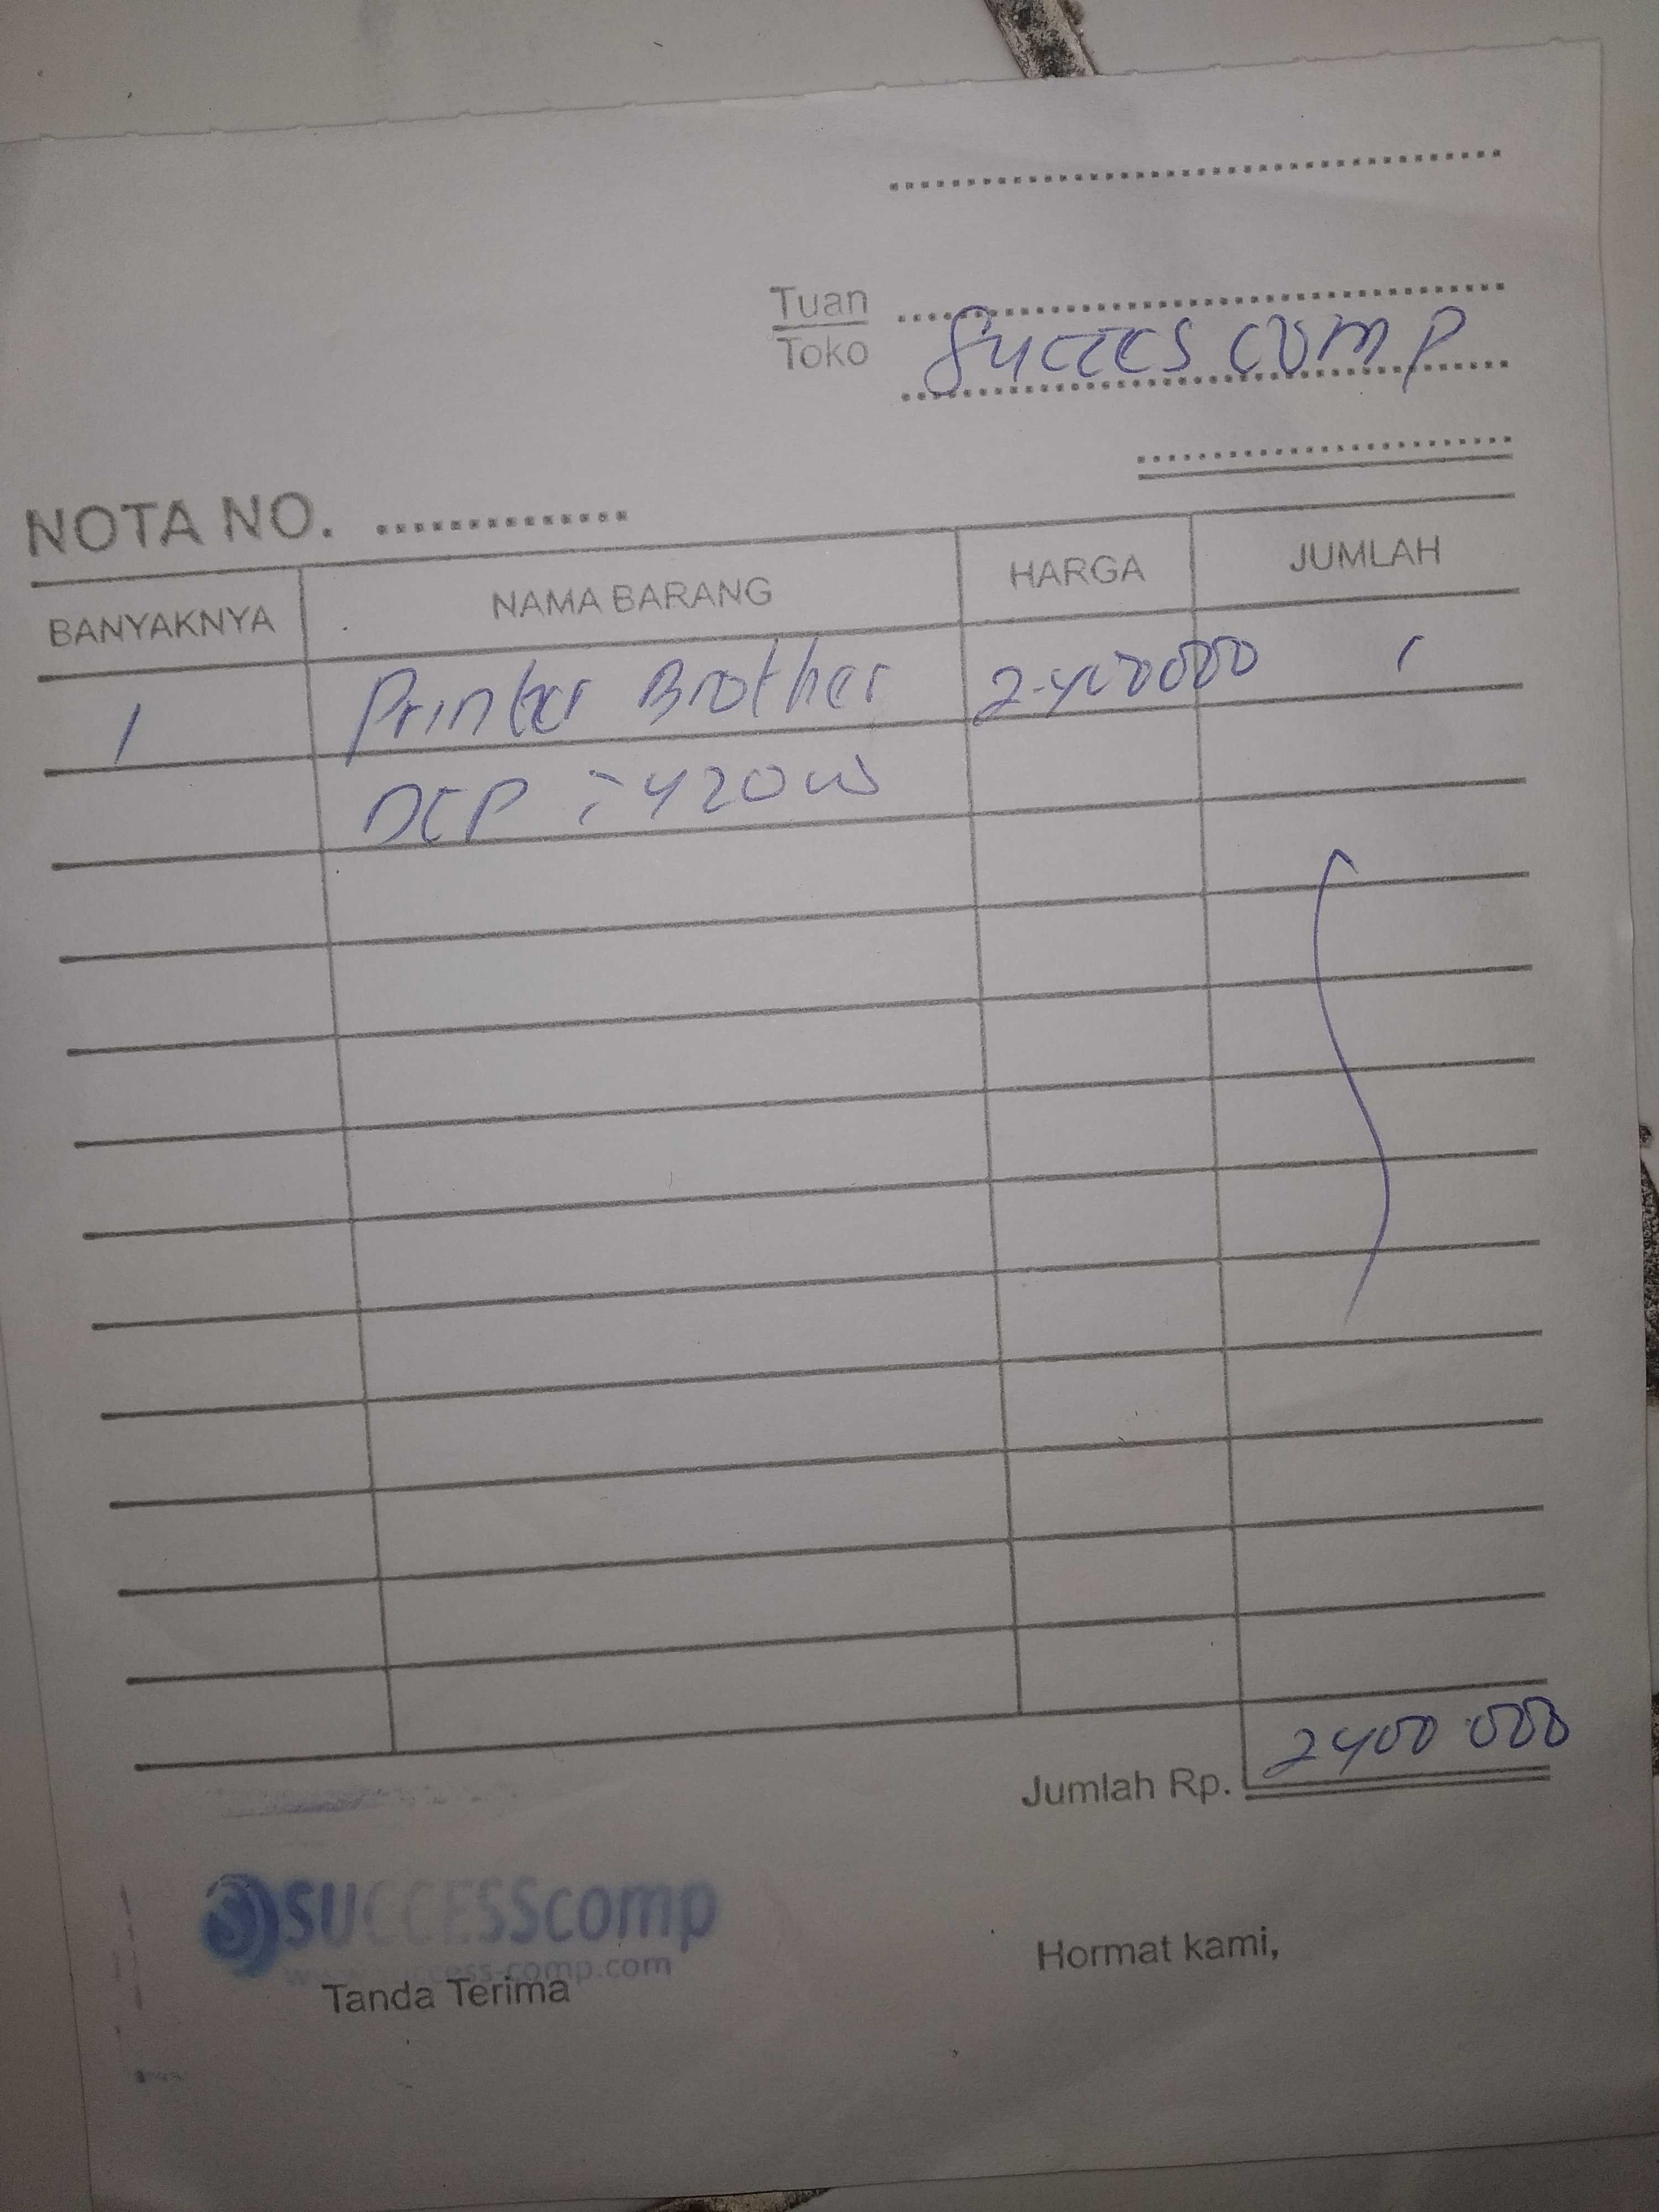 Tuan
Toko Succes comp
NOTA NO. ..............
BANYAKNYA NAMA BARANG HARGA JUMLAH
1 Printer Brother 2.400000 1
DCP : 420 W
Jumlah Rp. 2400.000
SUCCESScomp
www.success-comp.com
Tanda Terima Hormat kami,